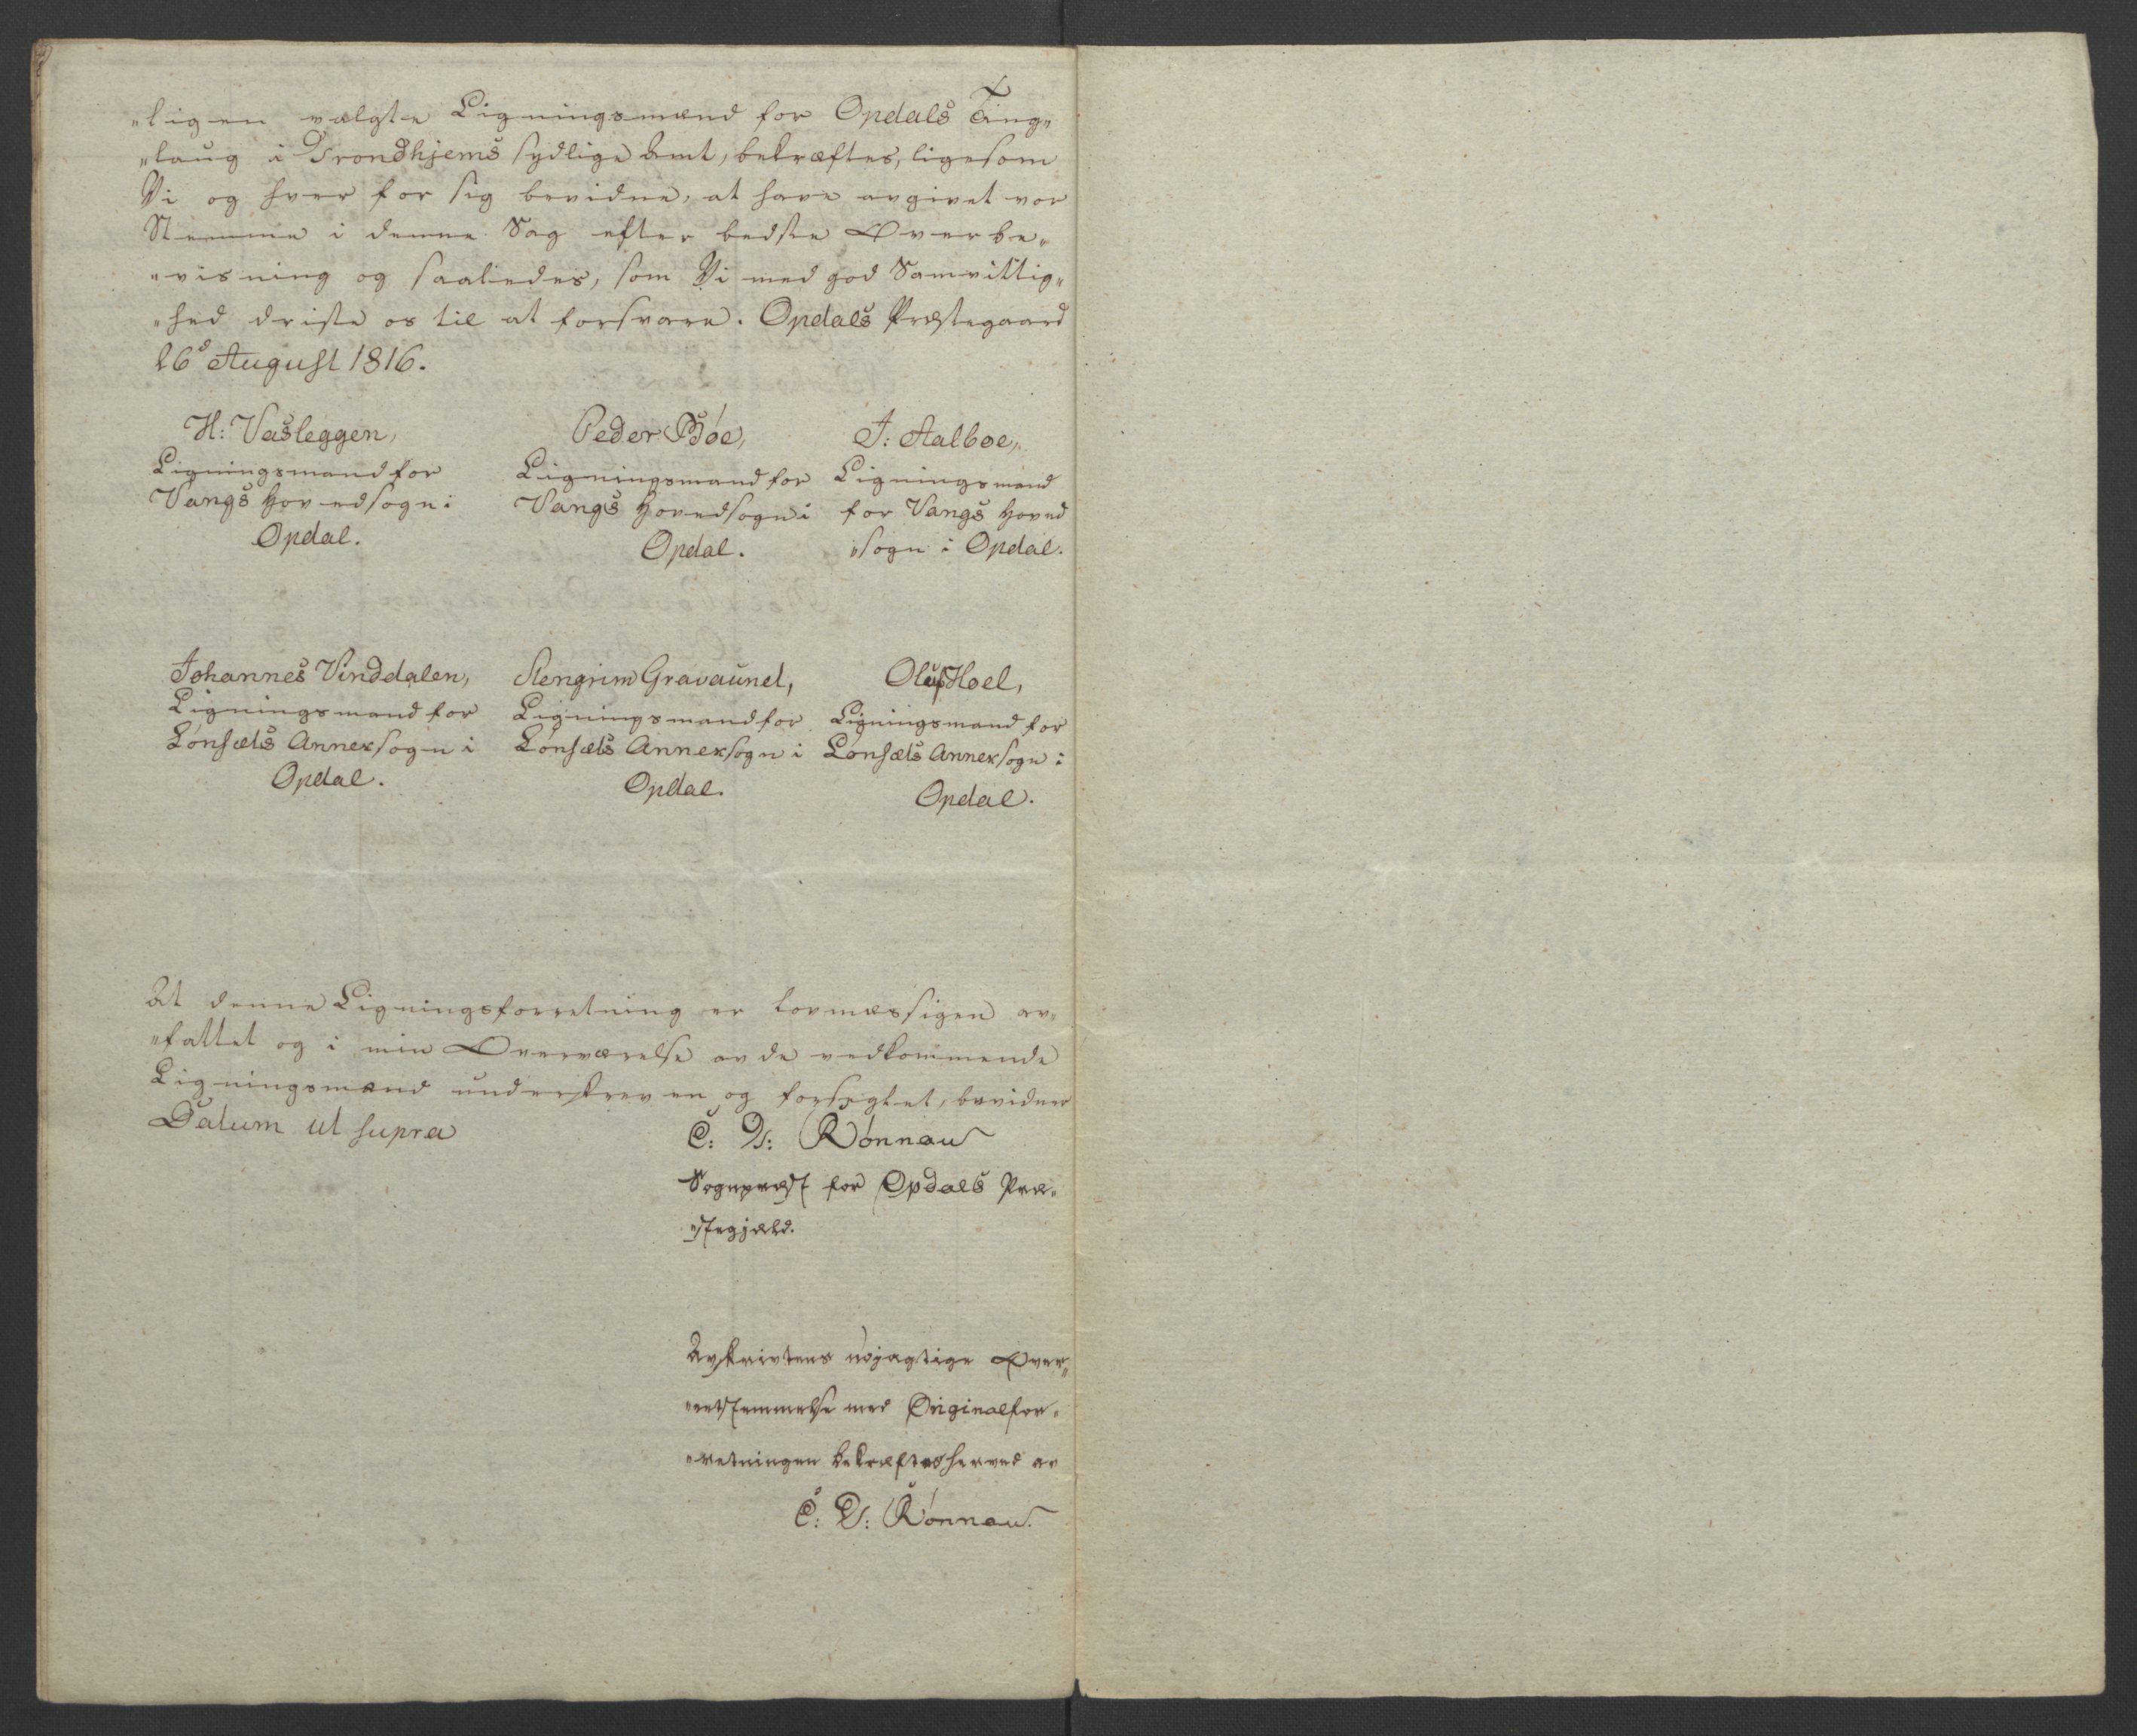 "ligen valgte Ligningsmænd for Opdals Ting"
"laug i Trondhjems sydlige Amt, bekræftes, ligesom
Vi og hver for sig bevidne, at have avgivet vor
Stemme i denne Sag efter bedste Overbe"
"visning og saaledes, som Vi med god Samvittig"
"hed driste os til at forsvare. Opdals Præstegaard
26d August 1816.
H: Vasleggen,
Ligningsmand for
Vangs Hovedsogn i
Opdal.
Peder Bøe,
Ligningsmand for
Vangs Hovedsogn i
Opdal.
J: Aalboe,
Ligningsmand
for Vangs Hoved
"sogn i Opdal.
Johannes Vinddalen,
Ligningsmand for
Lønsæts Annexsogn i
Opdal.
Stengrim Gravaunet,
Ligningsmand for
Lønsæts Annexsogn i
Opdal.
Oluf Hoel,
Ligningsmand for
Lønsæts Annexsogn i
Opdal.
At denne Ligningsforretning er lovmæssigen av"
"fattet og i min Overværelse av de vedkommende
Ligningsmænd underskreven og forseglet, bevidner
Datum ut supra
C: D: Rønnau
Sognepræst for Opdals Præ"
"stegjæld.
Avskrivtens nöjagtige Over"
"eetsstemmelse med Originalfor"
"retningen bekræftes herved av
C: D: Rønnau.